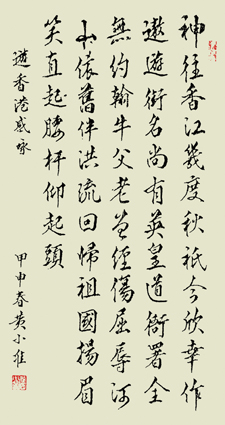 神往香江幾度秋祇今欣幸作
遨遊街名尚有英皇道衙署全
無約翰牛父老曾經傷屈辱河
山依舊伴洪流回歸祖國揚眉
笑直起腰杆仰起頭
遊香港感咏
甲申春黄小維